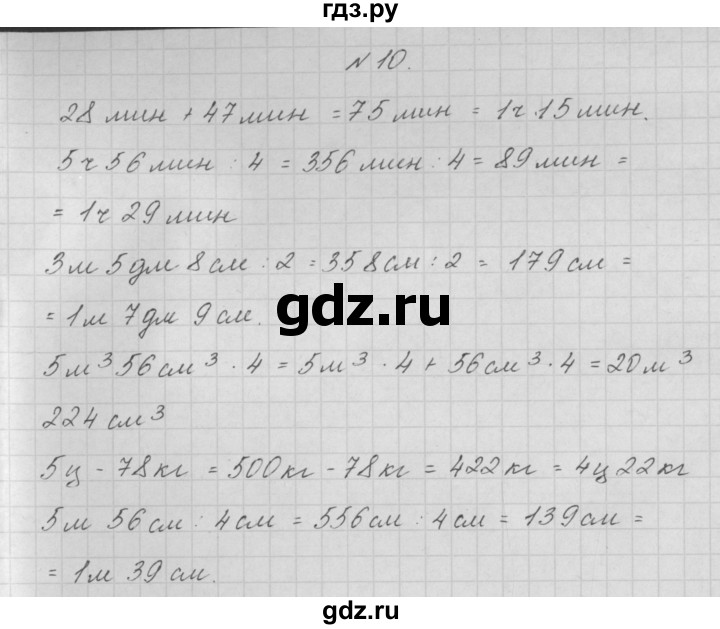 гдз.ру
№ 10.
28 мин + 47 мин = 75 мин = 1ч 15 мин.
5ч 56 мин : 4 = 356 мин : 4 = 89 мин =
= 1ч 29 мин
3м 5дм 8см : 2 = 358см : 2 = 179см =
= 1м 7дм 9см.
gdz.ru
5м³ 56см³ · 4 = 5м³ · 4 + 56см³ · 4 = 20м³
224см³
5ц - 78кг = 500кг - 78кг = 422кг = 4ц 22кг
5м 56см : 4см = 556см : 4см = 139см =
= 1м 39см.
gdz.ru